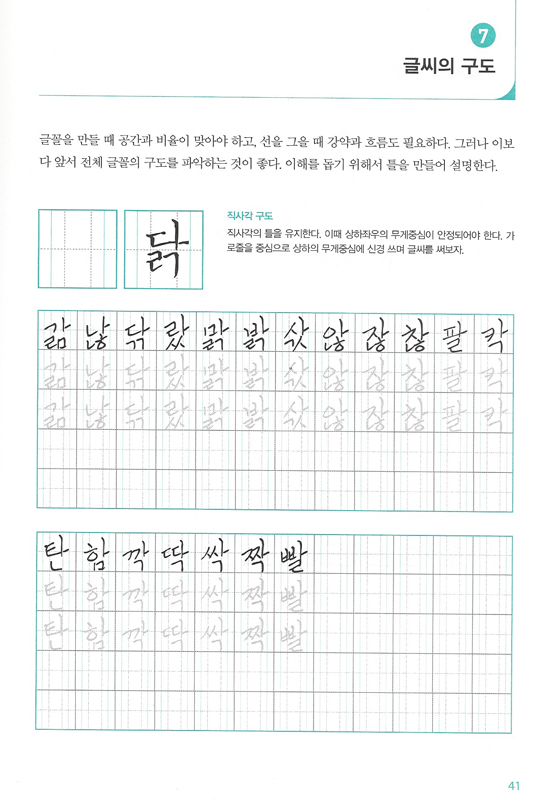 7
글씨의 구도
글꼴을 만들 때 공간과 비율이 맞아야 하고, 선을 그을 때 강약과 흐름도 필요하다. 그러나 이보
다 앞서 전체 글꼴의 구도를 파악하는 것이 좋다. 이해를 돕기 위해서 틀을 만들어 설명한다.
직사각 구도
직사각의 틀을 유지한다. 이때 상하좌우의 무게중심이 안정되어야 한다. 가
로줄을 중심으로 상하의 무게중심에 신경 쓰며 글씨를 써보자.
닭
굶 낞 닦 랐 맑 밝 삯 않 잖 찮 팔 칵
굶 낞 닦 랐 맑 밝 삯 않 잖 찮 팔 칵
굶 낞 닦 랐 맑 밝 삯 않 잖 찮 팔 칵
탄 함 깍 딱 싹 짝 빨
탄 함 깍 딱 싹 짝 빨
탄 함 깍 딱 싹 짝 빨
41